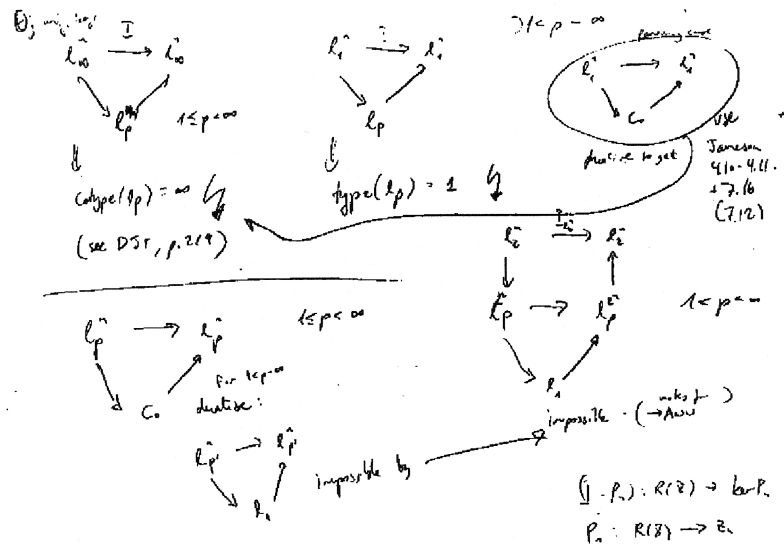 I
l_∞^n → l_∞^n
l_p^n
1≤p<∞
cotype(l_p) = ∞
(see DJT, p.219)
l_1^n → l_1^n
l_p
type(l_p) = 1
1<p<∞
l_1^n → l_1^n
c_0
dualise to get
use
Jameson
4.10-4.11.
+7.16
(7.12)
l_2^n → l_2^n
l_p^n → l_p^n
1<p<∞
l_1
impossible
l_p^n → l_p^n
1≤p<∞
c_0
for 1<p<∞
dualise:
l_p'^n → l_p'^n
l_1
impossible by
(I-P_n): R(Z) → ker P_n
P_n: R(Z) → Z_n